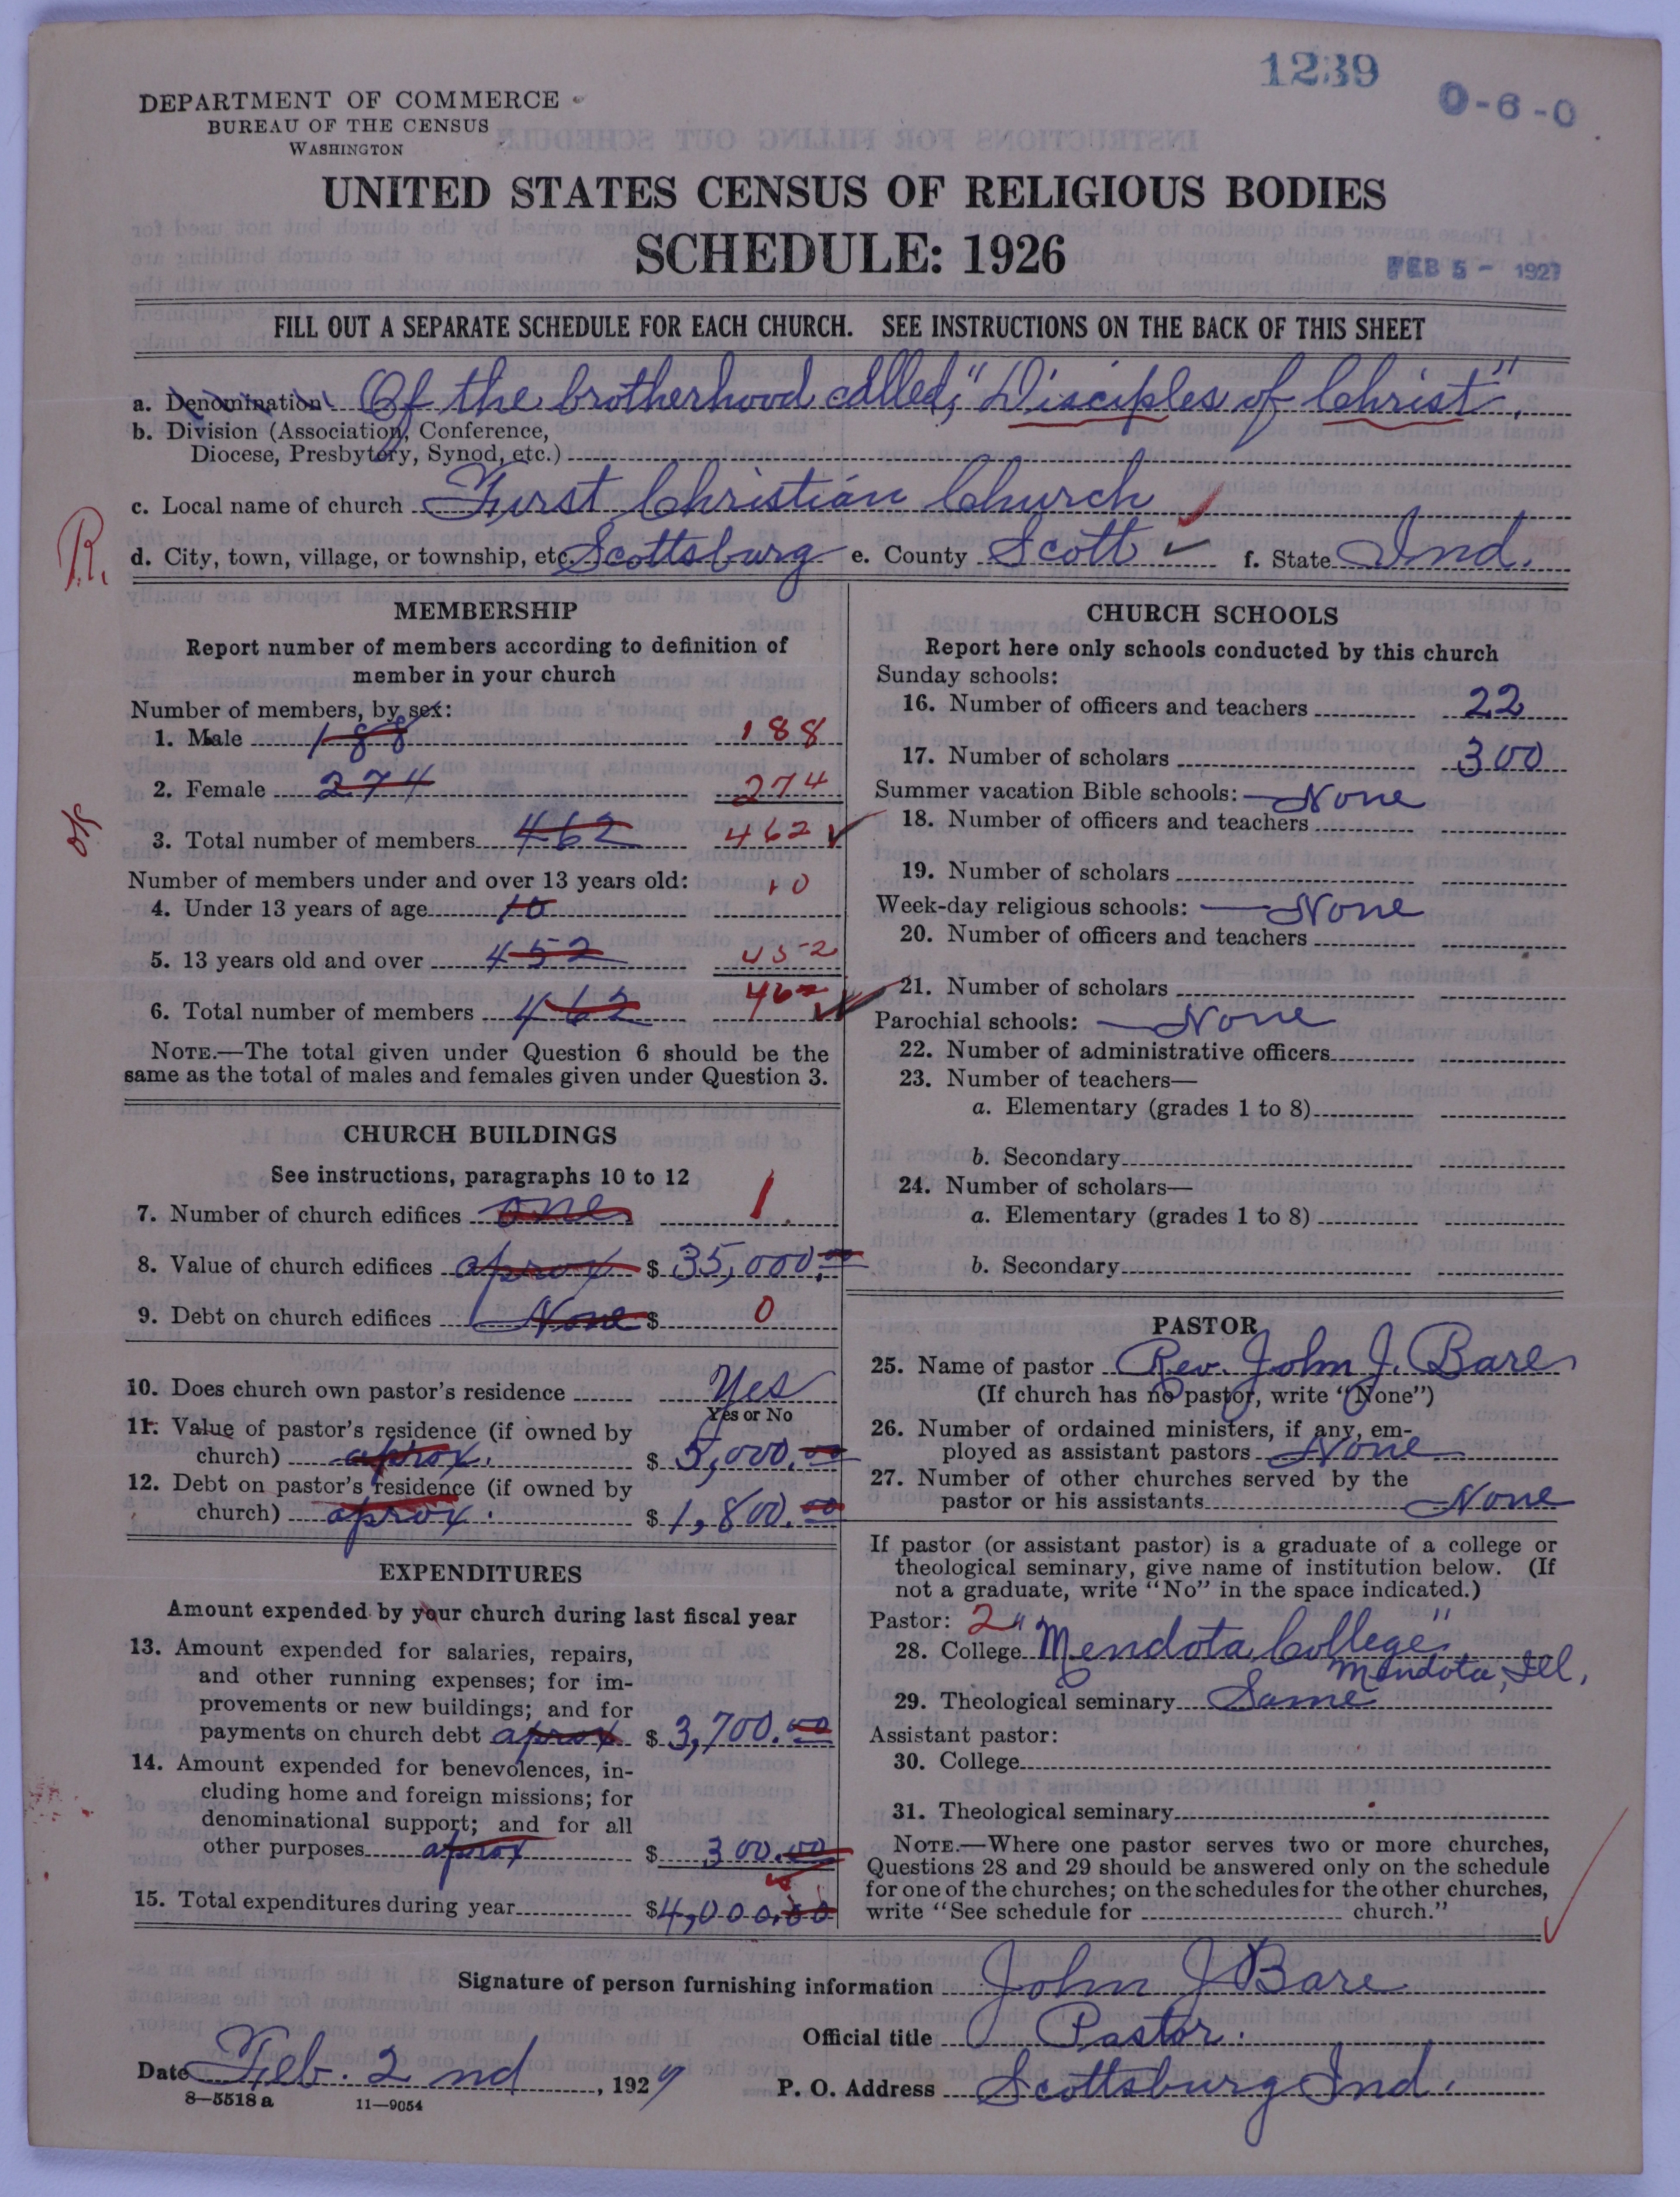 1239
0-6-0
DEPARTMENT OF COMMERCE
BUREAU OF THE CENSUS
WASHINGTON
UNITED STATES CENSUS OF RELIGIOUS BODIES
SCHEDULE: 1926
FEB 5 - 1927
FILL OUT A SEPARATE SCHEDULE FOR EACH CHURCH. SEE INSTRUCTIONS ON THE BACK OF THIS SHEET
a. Denomination Of the brotherhood called, "Disciples of Christ".
b. Division (Association, Conference,
Diocese, Presbytery, Synod, etc.)
c. Local name of church First Christian Church
R.
d. City, town, village, or township, etc. Scottsburg e. County Scott f. State Ind.
MEMBERSHIP
Report number of members according to definition of
member in your church
Number of members, by sex:
1. Male 188 188
2. Female 274 274
3. Total number of members 462 462
Number of members under and over 13 years old:
4. Under 13 years of age 10 10
5. 13 years old and over 452 452
6. Total number of members 462 462
NOTE.—The total given under Question 6 should be the
same as the total of males and females given under Question 3.
CHURCH BUILDINGS
See instructions, paragraphs 10 to 12
7. Number of church edifices one 1
8. Value of church edifices aprox $ 35,000.00
9. Debt on church edifices None $ 0
10. Does church own pastor's residence Yes
Yes or No
11. Value of pastor's residence (if owned by
church) aprox. $ 5,000.00
12. Debt on pastor's residence (if owned by
church) aprox. $ 1,800.00
EXPENDITURES
Amount expended by your church during last fiscal year
13. Amount expended for salaries, repairs,
and other running expenses; for im-
provements or new buildings; and for
payments on church debt aprox $ 3,700.00
14. Amount expended for benevolences, in-
cluding home and foreign missions; for
denominational support; and for all
other purposes aprox $ 300.00
15. Total expenditures during year $4,000.00
CHURCH SCHOOLS
Report here only schools conducted by this church
Sunday schools:
16. Number of officers and teachers 22
17. Number of scholars 300
Summer vacation Bible schools: None
18. Number of officers and teachers
19. Number of scholars
Week-day religious schools: None
20. Number of officers and teachers
21. Number of scholars
Parochial schools: None
22. Number of administrative officers
23. Number of teachers—
a. Elementary (grades 1 to 8)
b. Secondary
24. Number of scholars—
a. Elementary (grades 1 to 8)
b. Secondary
PASTOR
25. Name of pastor Rev. John J. Bare
(If church has no pastor, write "None")
26. Number of ordained ministers, if any, em-
ployed as assistant pastors None
27. Number of other churches served by the
pastor or his assistants None
If pastor (or assistant pastor) is a graduate of a college or
theological seminary, give name of institution below. (If
not a graduate, write "No" in the space indicated.)
Pastor: 2
28. College "Mendota College"
Mendota, Ill.
29. Theological seminary Same
Assistant pastor:
30. College
31. Theological seminary
NOTE.—Where one pastor serves two or more churches,
Questions 28 and 29 should be answered only on the schedule
for one of the churches; on the schedules for the other churches,
write "See schedule for church."
Signature of person furnishing information John J Bare
Official title Pastor.
Date Feb. 2 nd, 1927
P. O. Address Scottsburg Ind.
8—5518 a 11—9054